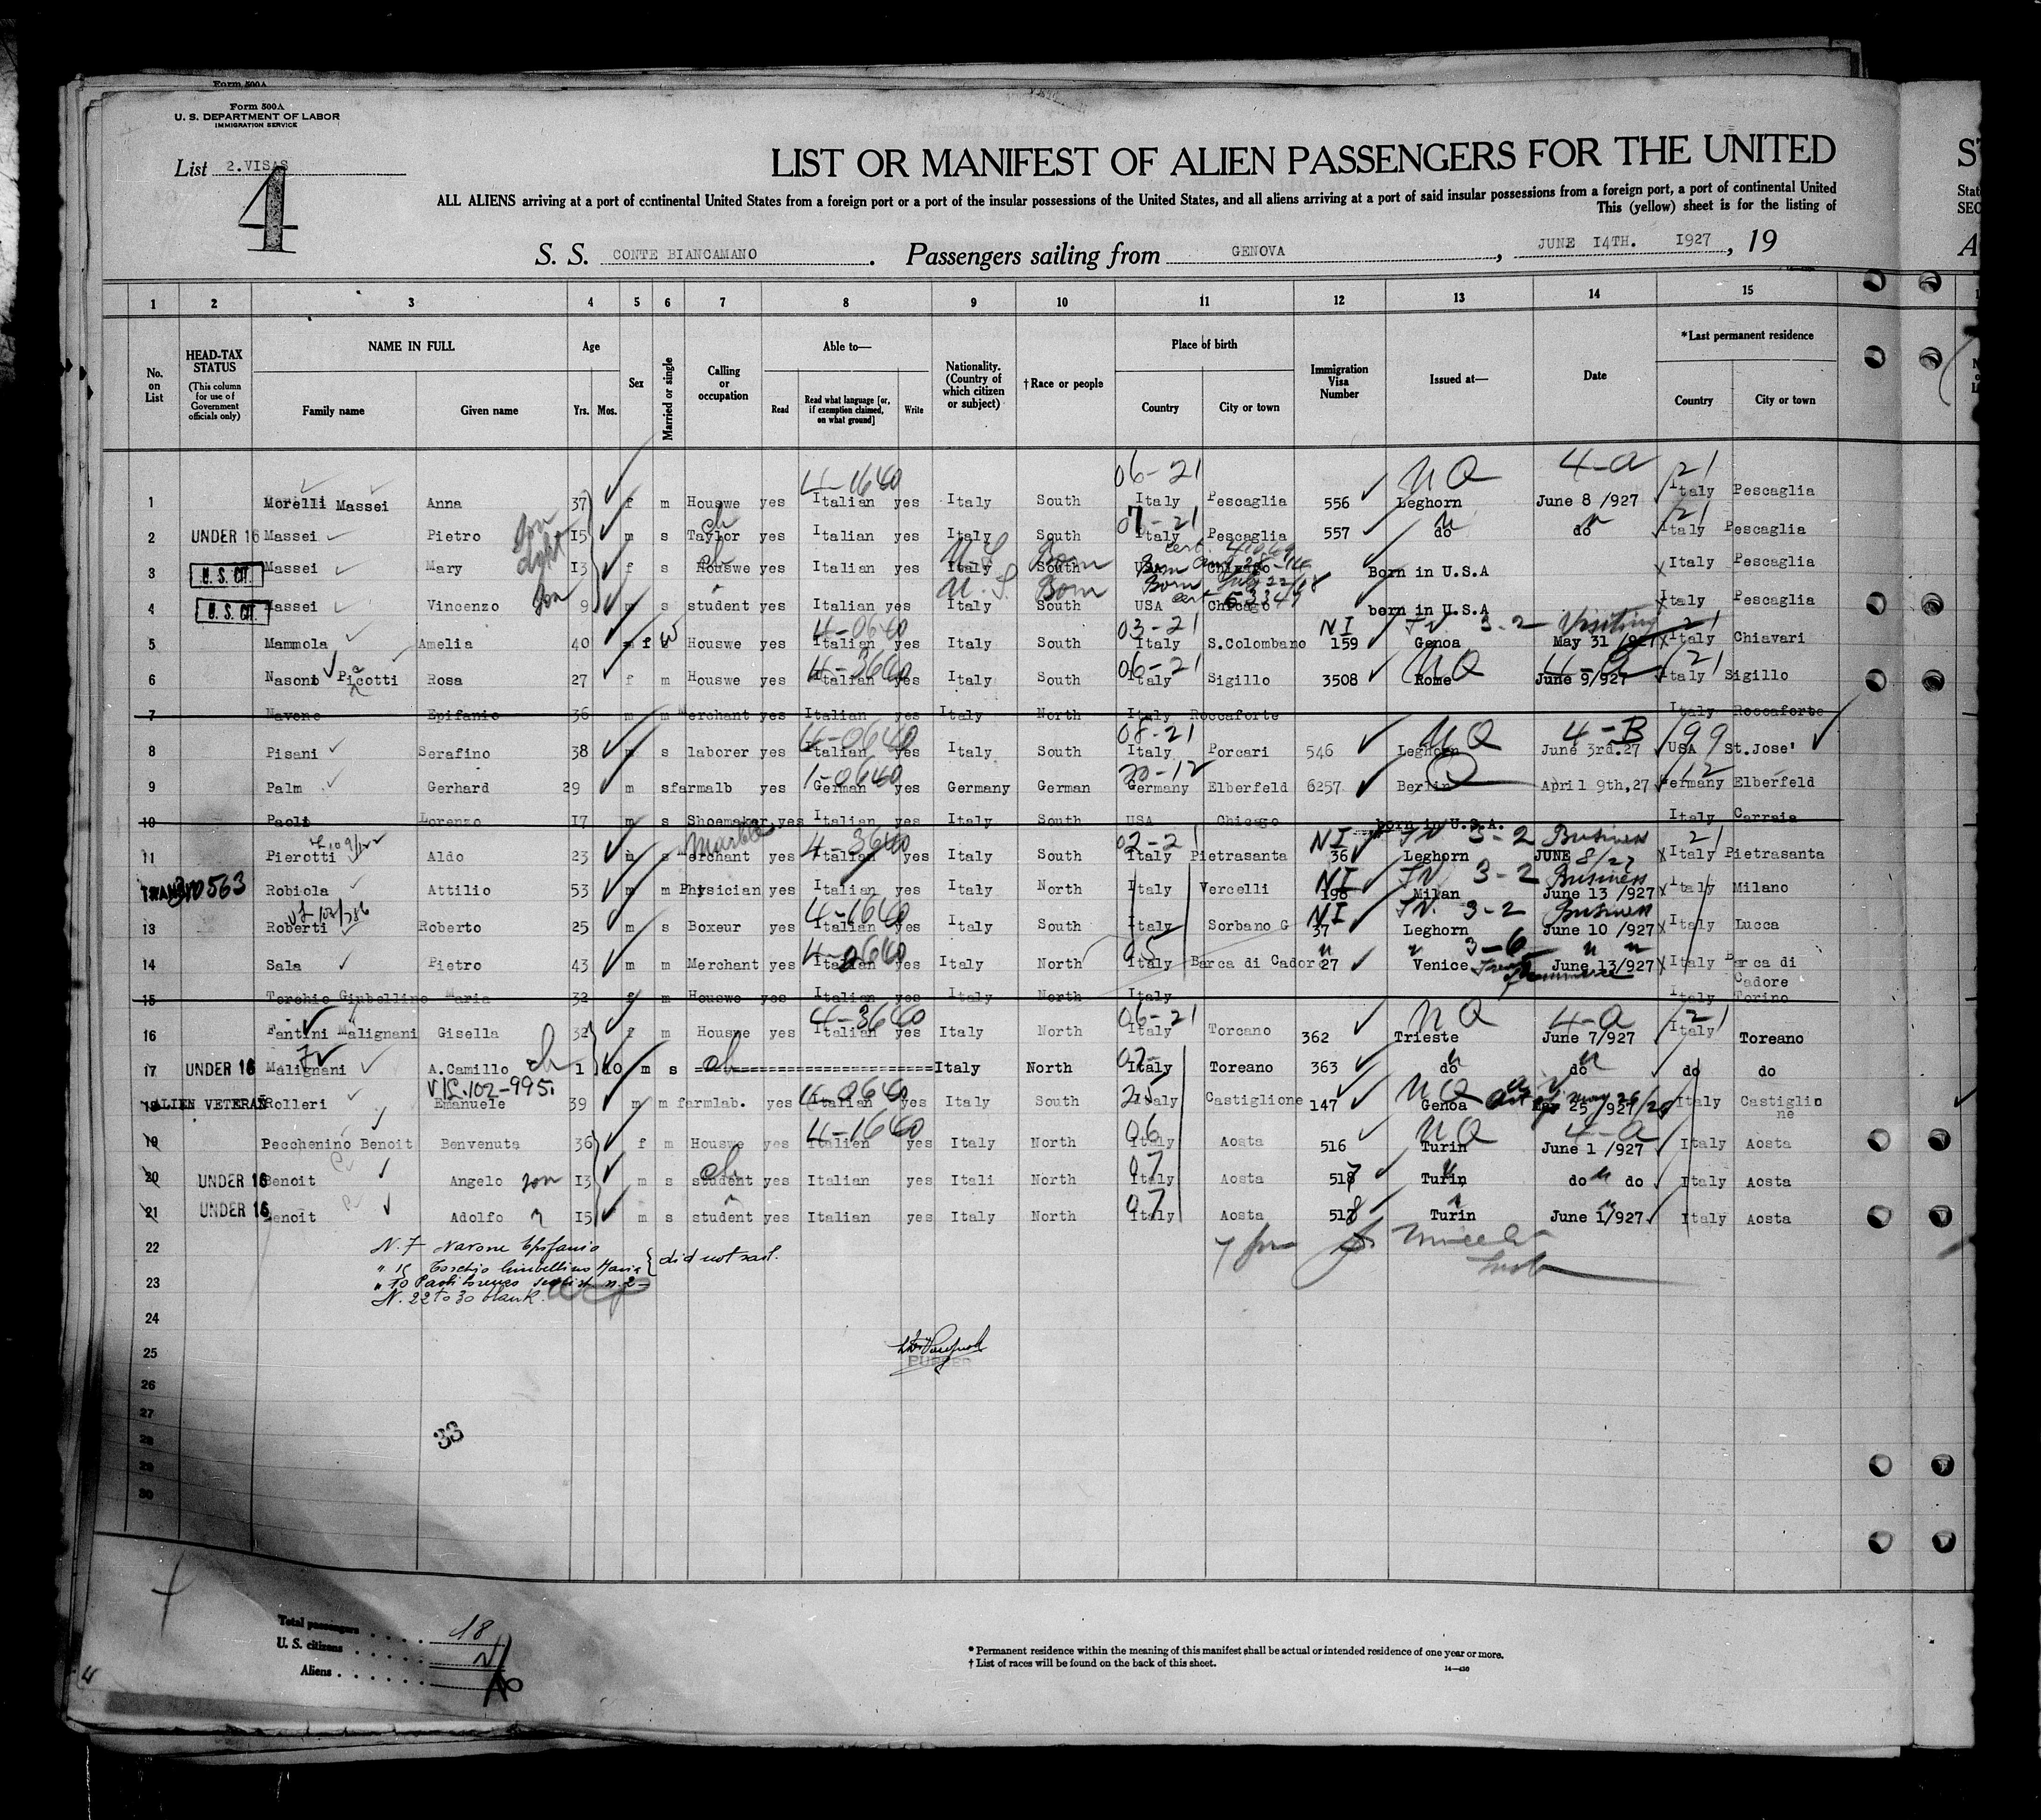 Form 500A
Form 500A
U. S. DEPARTMENT OF LABOR
IMMIGRATION SERVICE
List 2.VISAS
4
LIST OR MANIFEST OF ALIEN PASSENGERS FOR THE UNITED
ALL ALIENS arriving at a port of continental United States from a foreign port or a port of the insular possessions of the United States, and all aliens arriving at a port of said insular possessions from a foreign port, a port of continental United
This (yellow) sheet is for the listing of
S. S. CONTE BIANCAMANO. Passengers sailing from GENOVA, JUNE 14TH. 1927, 19
1 2 3 4 5 6 7 8 9 10 11 12 13 14 15
No. on List
HEAD-TAX STATUS (This column for use of Government officials only)
NAME IN FULL Family name Given name
Age Yrs. Mos.
Sex
Married or single
Calling or occupation
Able to— Read Read what language [or, if exemption claimed, on what ground] Write
Nationality. (Country of which citizen or subject)
† Race or people
Place of birth Country City or town
Immigration Visa Number
Issued at—
Date
*Last permanent residence Country City or town
4-1640 06-21 4-a 21
1 Morelli Massei Anna 37 f m Houswe yes Italian yes Italy South Italy Pescaglia 556 Leghorn June 8 /927 Italy Pescaglia
2 UNDER 16 Massei Pietro son 15 m s Taylor yes Italian yes Italy South Italy Pescaglia 557 do do Italy Pescaglia
3 U. S. CIT. Massei Mary 13 f s Houswe yes Italian yes Italy South USA Chicago Born in U.S.A Italy Pescaglia
4 U. S. CIT. Massei Vincenzo son 9 m s student yes Italian yes Italy South USA Chicago born in U.S.A Italy Pescaglia
4-0640 03-21 NI 3-2 Visiting 21
5 Mammola Amelia 40 f Houswe yes Italian yes Italy South Italy S.Colombano 159 Genoa May 31 /927 Italy Chiavari
4-3640 06-21 21
6 Nasoni Picotti Rosa 27 f m Houswe yes Italian yes Italy South Italy Sigillo 3508 Rome June 9/927 Italy Sigillo
7 Navone Epifanio 36 m m Merchant yes Italian yes Italy North Italy Roccaforte Italy Roccaforte
4-0640 08-21 4-B 99
8 Pisani Serafino 38 m s laborer yes Italian yes Italy South Italy Porcari 546 Leghorn June 3rd.27 USA St.Jose'
1-0640 20-12 12
9 Palm Gerhard 29 m s farmalb yes German yes Germany German Germany Elberfeld 6257 Berlin April 9th,27 Germany Elberfeld
10 Paoli Lorenzo 17 m s Shoemaker yes Italian yes Italy South USA Chicago born in U.S.A. Italy Carraia
Marble 4-3640 02-21 NI 3-2 Business 21
11 Pierotti Aldo 23 m s Merchant yes Italian yes Italy South Italy Pietrasanta 36 Leghorn JUNE 8/27 Italy Pietrasanta
NI 3-2 Business
Robiola Attilio 53 m m Physician yes Italian yes Italy North Italy Vercelli 198 Milan June 13 /927 Italy Milano
4-1640 NI 3-2 Business
13 Roberti Roberto 25 m s Boxeur yes Italian yes Italy South Italy Sorbano G 37 Leghorn June 10 /927 Italy Lucca
05 3-6
14 Sala Pietro 43 m m Merchant yes Italian yes Italy North Italy Barca di Cador 27 Venice June 13/927 Italy Barca di Cadore
15 Torchio Gimbellino Maria 32 f m Houswe yes Italian yes Italy North Italy Italy Torino
4-3640 06-21 4-a 21
16 Fantini Malignani Gisella 32 f m Houswe yes Italian yes Italy North Italy Torcano 362 Trieste June 7/927 Italy Toreano
17 UNDER 16 Malignani A.Camillo ch 1 10 m s ch Italy North Italy Toreano 363 do do do do
VIS.102-995.
18 ALIEN VETERAN Rolleri Emanuele 39 m m farmlab. yes Italian yes Italy South Italy Castiglione 147 Genoa 25 /927 Italy Castiglione
4-1640 06 4-a
19 Pecchenino Benoit Benvenuta 36 f m Houswe yes Italien yes Italy North Italy Aosta 516 Turin June 1 /927 Italy Aosta
20 UNDER 16 Benoit Angelo son 13 m s student yes Italian yes Itali North Italy Aosta 517 Turin do do Italy Aosta
21 UNDER 16 Benoit Adolfo 15 m s student yes Italian yes Italy North Italy Aosta 518 Turin June 1/927. Italy Aosta
22 N. 7 Navone Epifanio
" 15 Torchio Gimbellino Maria } did not sail.
23 " 10 Paoli Lorenzo see list n. 2
N. 22 to 30 blank.
24
25 PURSER
26
27
33
28
29
30
Total passengers . . . . . 18
U. S. citizens . . . . . 2
Aliens . . . . . .
* Permanent residence within the meaning of this manifest shall be actual or intended residence of one year or more.
† List of races will be found on the back of this sheet.
14—430